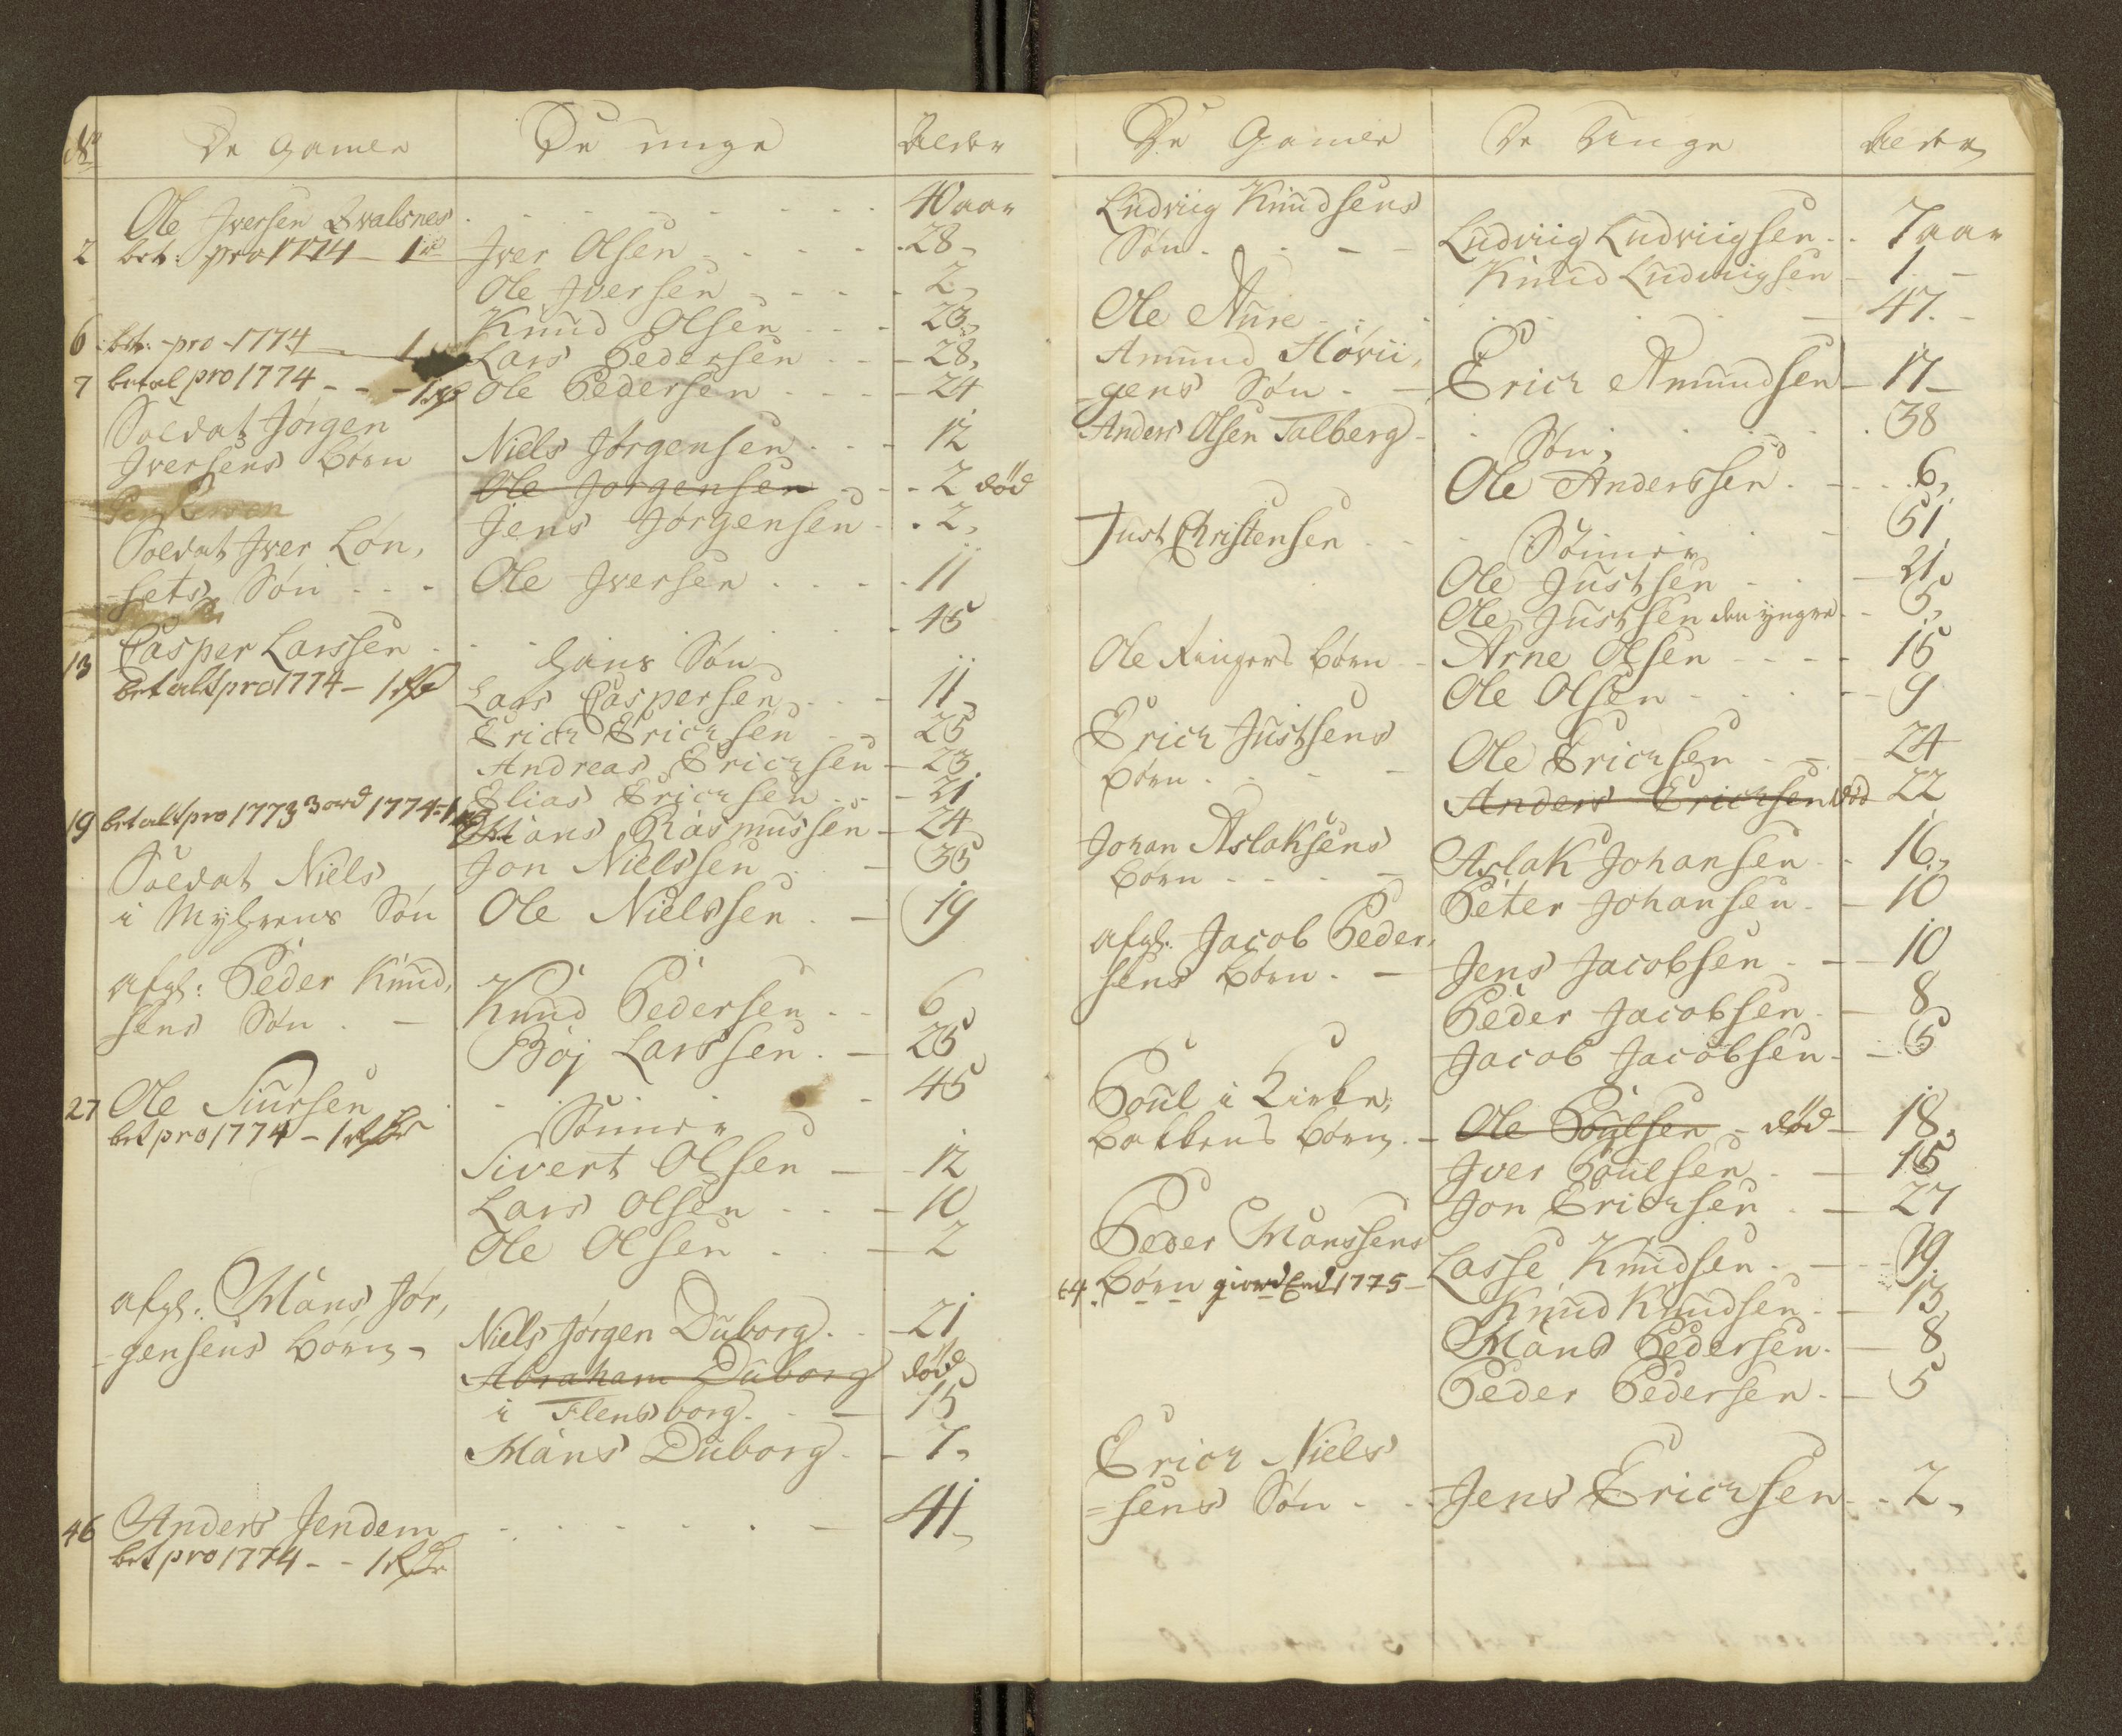 No De Gamle De unge Alder
Ole Iversen Qvalsnes - - - 40 aar
2 bet: pro 1774 - 1 rd Iver Olsen - - 28
Ole Iversen - - - 2
Knud Olsen - - - 23
6 bet: pro 1774 - 1 Lars Pedersen - - 28
7 betal pro 1774 - - - 1 Ole Pedersen - - - 24
Soldat Jørgen
Iversens Børn Niels Jørgensen - - - 12
Ole Jørgensen - - - 2 død
Jens Jørgensen - 2
Soldat Iver Løn,
=sets Søn - - - Ole Iversen - - - 11
Casper Larssen - - - 45
13 betalt pro 1774 - 1 hans Søn
Lars Caspersen - - - 11
Erich Erichsen - - 25
Andreas Erichsen - 23
Elias Erichsen - - 21
19 betalt pro 1773 3 ord 1774 - 1 Måns Rasmussen - 24
Soldat Niels Jon Nielssen - 35
i Myhrens Søn Ole Nielssen - 19
afgl: Peder Knud,
sens Søn - Knud Pedersen - - 6
Boj Larssen - 25
27 Ole Siursen - - - 45
bet pro 1774 - 1 Sønner
Sivert Olsen - - 12
Lars Olsen - - - 10
Ole Olsen - - - 2
afgl: Måns Jør,
=gensens børn - Niels Jørgen Duborg - - 21
Abraham Duborg død
i Flensborg - - 15
Måns Duborg - - 7
46 Anders Jendem - - - 41
bet pro 1774 - - 1
De Gamle De Unge Alder
Ludvig Knudsens
Søn - - - Ludviig Ludviigsen - 7 aar
Knud Ludviigsen - 1 -
Ole Aure - - - 47 -
Amund Hovii,
=gens Søn - - Erich Amundsen - 17 -
Anders Olsen Talberg - - - 38
Søn,
Ole Anderssen - - - 6
Just Christensen - - - 51
Sønner
Ole Justsen - - 21
Ole Justsen den yngre - - 5
Ole Ringers børn - Arne Olsen - - - 15
Ole Olsen - - - 9
Erich Justsens
børn - - - Ole Erichsen - - 24
Anders Erichsen død 22
Johan Aslaksens
Børn - - - Aslak Johansen - - 16
Peter Johansen - 10
afgl: Jacob Peder,
sens børn - Jens Jacobsen - - 10
Peder Jacobsen - 8
Jacob Jacobsen - - 5
Poul i Kirke,
bakkens børn - Ole Poulsen - død - 18
Iver Poulsen - - 15
Jon Erichsen - - 27
Peder Månssens Lasse Knudsen - - 19
64 Børn 1775 - Knud Knudsen - - 13
Måns Pedersen - 8
Peder Pedersen - 5
Erich Niels
=sens Søn - - Jens Erichsen - - 2